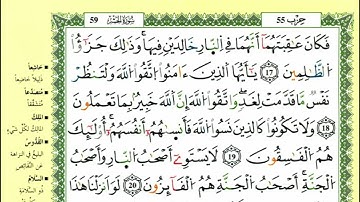 حِزْب 55
سُورَةُ الحَشْرِ
59
فَكَانَ عَٰقِبَتَهُمَآ أَنَّهُمَا فِي ٱلنَّارِ خَٰلِدَيْنِ فِيهَا وَذَٰلِكَ جَزَٰٓؤُا۟
ٱلظَّٰلِمِينَ 17 يَٰٓأَيُّهَا ٱلَّذِينَ ءَامَنُوا۟ ٱتَّقُوا۟ ٱللَّهَ وَلْتَنظُرْ
نَفْسٌ مَّا قَدَّمَتْ لِغَدٍ وَٱتَّقُوا۟ ٱللَّهَ إِنَّ ٱللَّهَ خَبِيرٌۢ بِمَا تَعْمَلُونَ
18 وَلَا تَكُونُوا۟ كَٱلَّذِينَ نَسُوا۟ ٱللَّهَ فَأَنسَىٰهُمْ أَنفُسَهُمْ أُو۟لَٰٓئِكَ
هُمُ ٱلْفَٰسِقُونَ 19 لَا يَسْتَوِىٓ أَصْحَٰبُ ٱلنَّارِ وَأَصْحَٰبُ
ٱلْجَنَّةِ أَصْحَٰبُ ٱلْجَنَّةِ هُمُ ٱلْفَآئِزُونَ 20 لَوْ أَنزَلْنَا هَٰذَا
خَاشِعاً
ذليلاً خاضعاً
مُتَصَدِّعاً
مُتَشَقِّقاً
المَلِكُ
المالك لكل شيء
القُدُّوسُ
البليغ في النزاهة
عن النقائص
السَّلَامُ
ذو السلامة